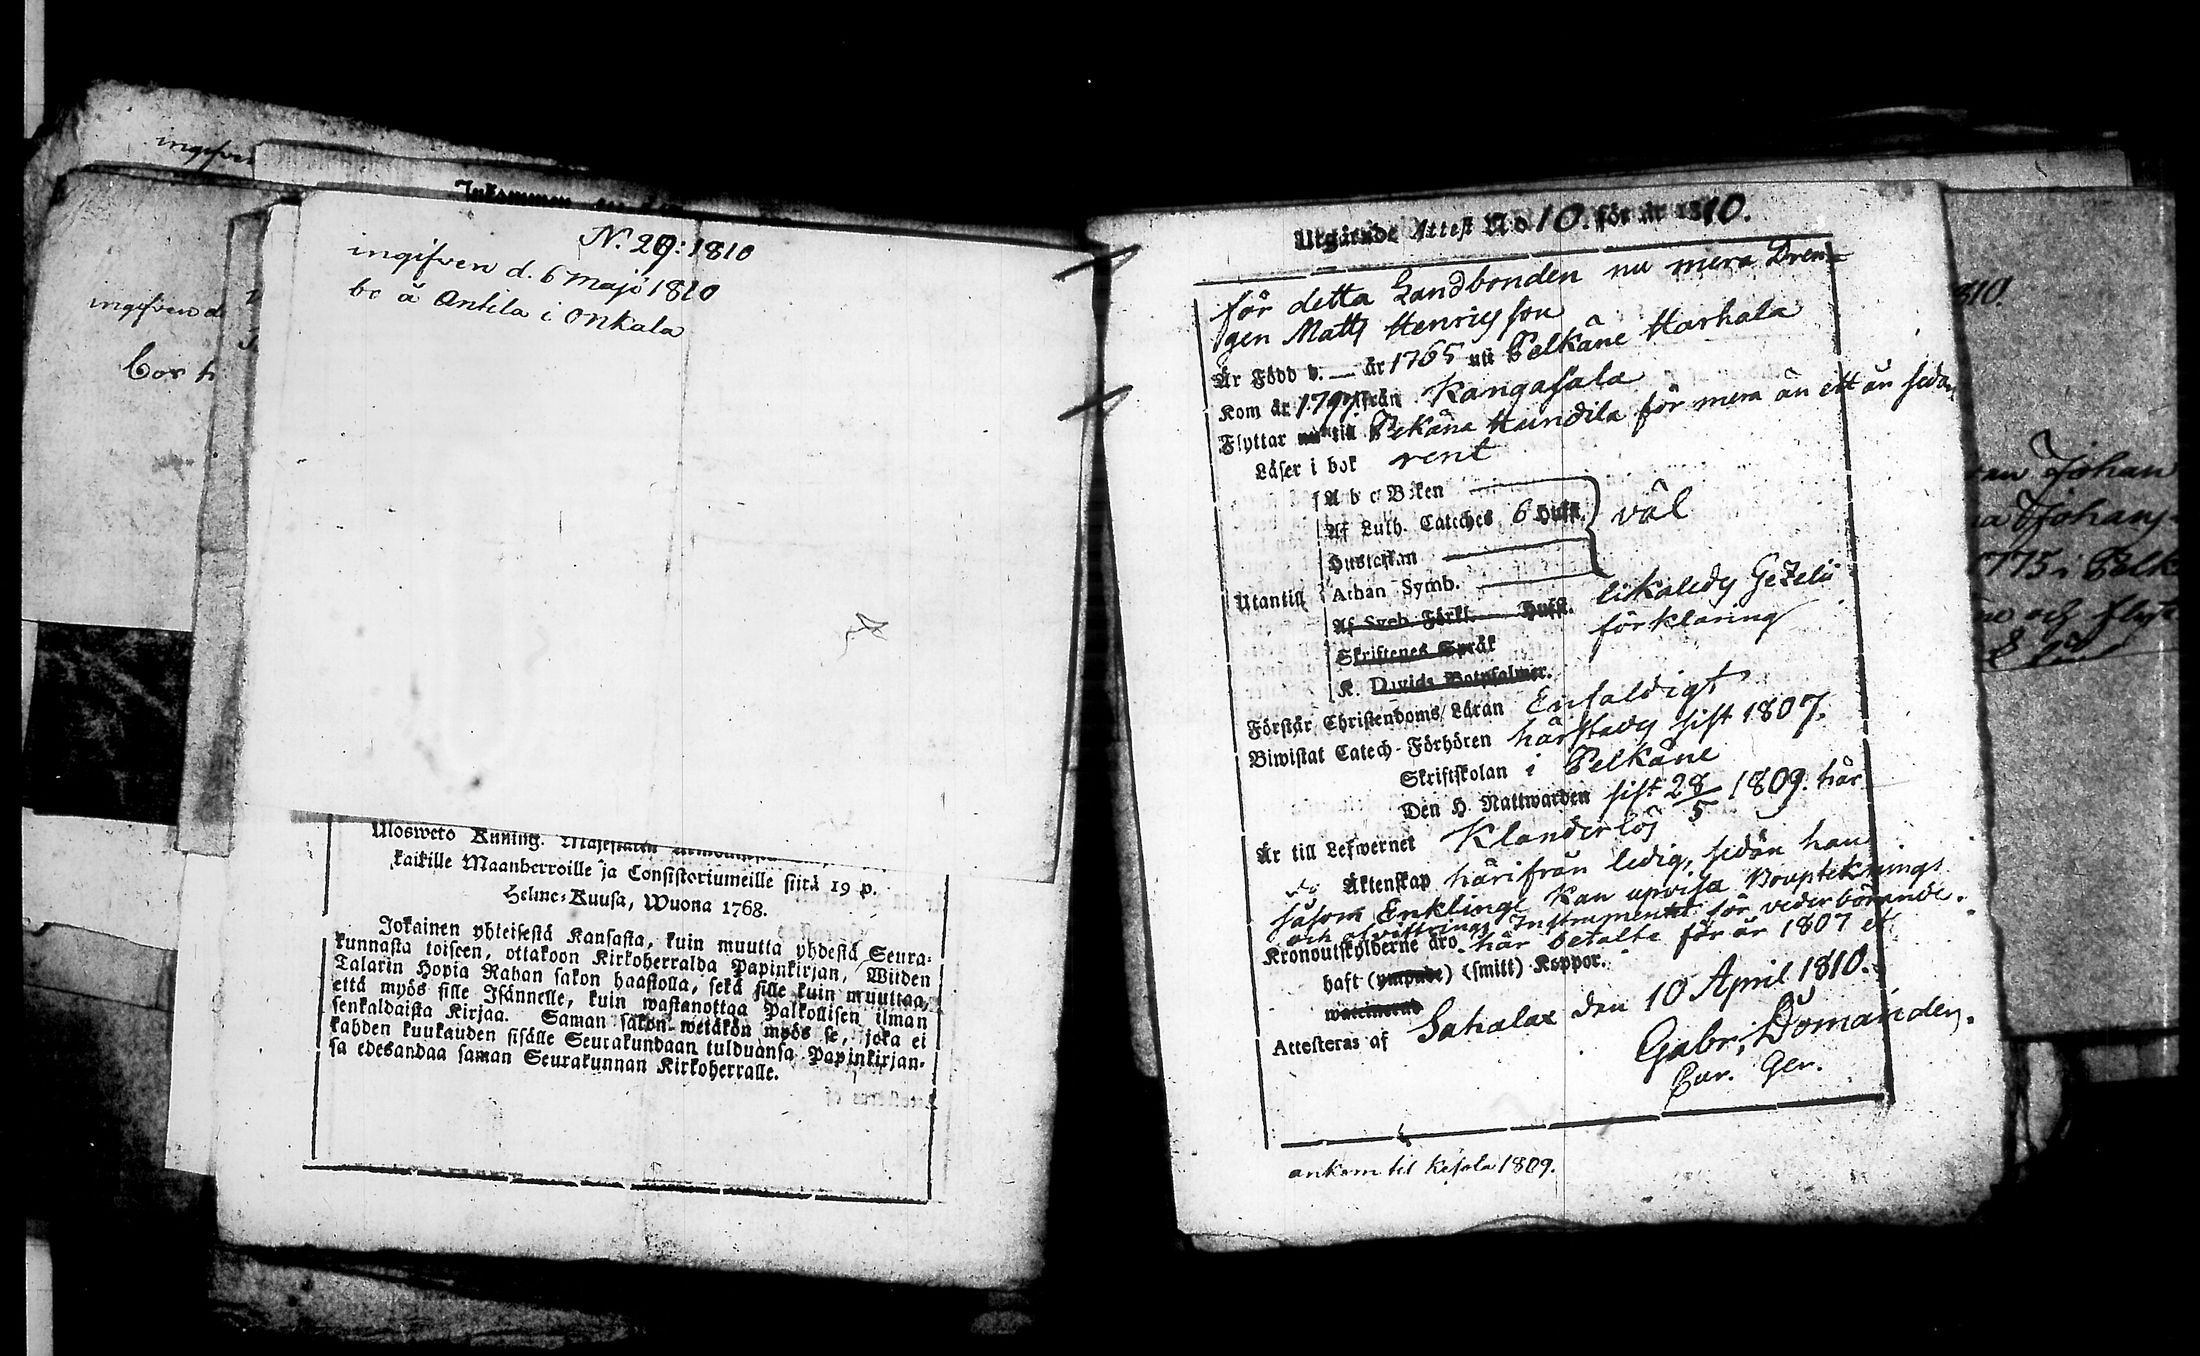 ingifven
Inkommen
ingifven d
Cor h
N. 29: 1810
ingifven d. 6 Maji 1810
bo å Antila i Onkala
Ulosweto Kuning.
kaikille Maanherroille ja Consistoriumeille siitä 19 p.
Helme-Kuusa, Wuona 1768.
Jokainen yhteisestä Kansasta, kuin muutta yhdestä Seura-
kunnasta toiseen, ottakoon Kirkoherralda Papinkirjan, Wiiden
Talarin Hopia Rahan sakon haastolla, sekä sille kuin muuttaa,
että myös sille Isännelle, kuin wastanottaa Palkollisen ilman
senkaldaista Kirjaa. Saman sakon wetäkön myös se, joka ei
kahden kuukauden sisälle Seurakundaan tulduansa Papinkirjan-
sa edesandaa saman Seurakunnan Kirkoherralle.
Utgående Attest No 10. för år 1810.
för detta Landbonden nu mera Dren-
gen Matts Henricsson
Är Född d. — år 1765 uti Pelkäne Harhala
Kom år från Kangasala
Flyttar till Pelkäne Haindila för mera än ett år sedan
Läser i bok rent
A b c Boken
Af Luth. Cateches 6 Hufst. väl
Hustaflan
Utantill Athan Symb.
Af Symb. Förkl. Hufst. likaledes Gezelii
förklaring
Skriftenes Språk
K. Davids Botpsalmer.
Förstår Christendoms Läran Enfaldigt
Biwistat Catech-Förhören härstades sist 1807.
Skriftskolan i Pelkäne
Den H. Nattwarden sist 28/5 1809. här
Är till Lefwernet Klanderlös
Äktenskap härifrån ledig, sedan han
såsom Enkling kan upvisa Bouptecknings
och afvittrings Instrument för vederbörande.
Kronoutskylderne äro här betalte för år 1807 et
haft (ympade) (smitt) Koppor.
Attesteras af Sahalax den 10 April 1810.
Gabr. Domander.
Cur. Ger.
ankom til Kesola 1809.
810.
Johan
Johans
1775 i Pelk
och flyt